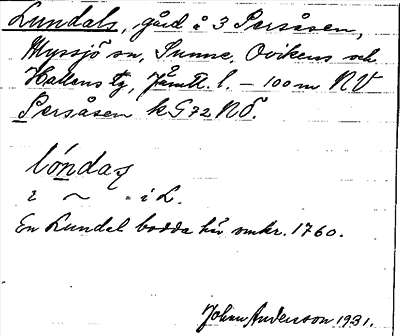 Lundals, gård å 3 Persåsen,
Myssjö sn, Sunne, Ovikens och
Hallens tg, Jämtl. l. – 100 m NV
Persåsen kG72 NÖ.
löndaʒ
i ~ - i L.
En Lundel bodde här omkr. 1760.
Johan Andersson 1931.